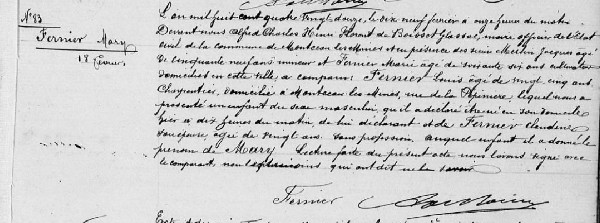 N° 83
Fernier Mary
18 février
L'an mil huit cent quatre vingt douze, le dix neuf février à onze heures du matin
Devant nous Alfred Charles Henri officier de l'Etat
civil de la commune de Montceau les Mines et en présence des sieurs Jacques âgé
de cinquante neuf ans mineur et Fernier Marie âgé de soixante six ans cultivateur
domiciliés en cette ville, a comparu Fernier Louis âgé de vingt cinq ans
Charpentier, domicilié à Montceau les Mines, rue de la Pépinière, lequel nous a
présenté un enfant du sexe masculin, qu'il a déclaré être né en son domicile
hier à dix heures du matin, de lui déclarant et de Fernier Claudine
son épouse, âgée de vingt ans sans profession auquel enfant il a donné le
prénom de Mary. Lecture faite du présent acte nous l'avons signé avec
le comparant, non qui ont dit ne le savoir
Fernier